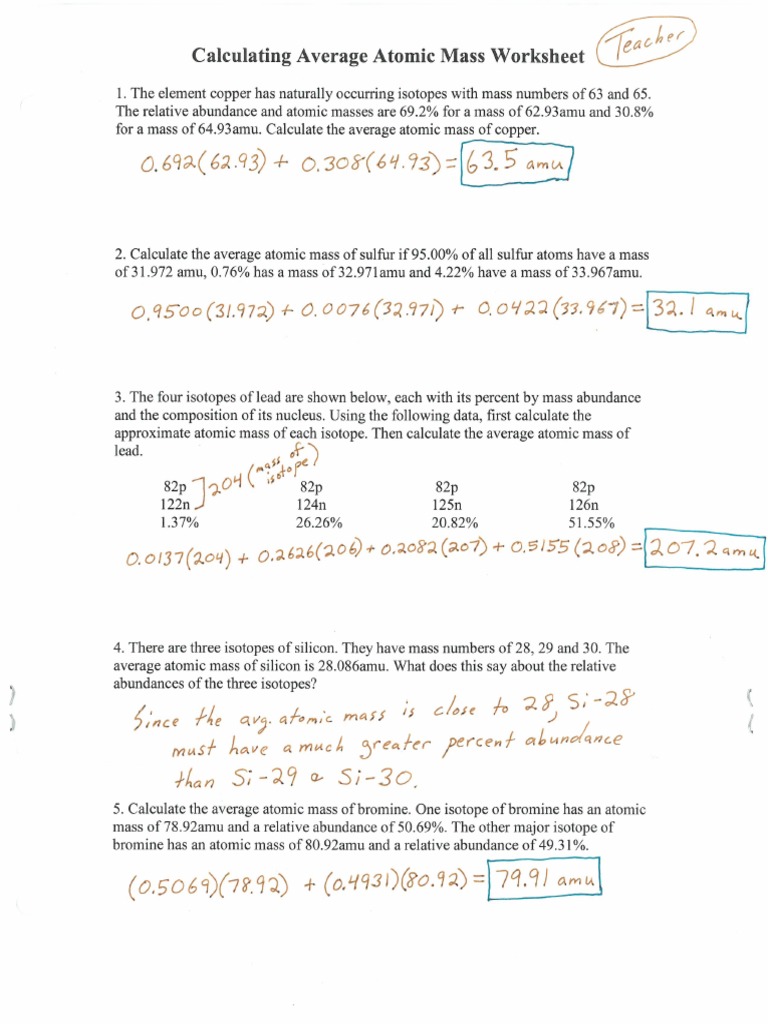 Calculating Average Atomic Mass Worksheet
Teacher
1. The element copper has naturally occurring isotopes with mass numbers of 63 and 65.
The relative abundance and atomic masses are 69.2% for a mass of 62.93amu and 30.8%
for a mass of 64.93amu. Calculate the average atomic mass of copper.
0.692(62.93) + 0.308(64.93) = 63.5 amu
2. Calculate the average atomic mass of sulfur if 95.00% of all sulfur atoms have a mass
of 31.972 amu, 0.76% has a mass of 32.971amu and 4.22% have a mass of 33.967amu.
0.9500(31.972) + 0.0076(32.971) + 0.0422(33.967) = 32.1 amu
3. The four isotopes of lead are shown below, each with its percent by mass abundance
and the composition of its nucleus. Using the following data, first calculate the
approximate atomic mass of each isotope. Then calculate the average atomic mass of
lead.
204 (mass of isotope)
82p 82p 82p 82p
122n 124n 125n 126n
1.37% 26.26% 20.82% 51.55%
0.0137(204) + 0.2626(206) + 0.2082(207) + 0.5155(208) = 207.2 amu
4. There are three isotopes of silicon. They have mass numbers of 28, 29 and 30. The
average atomic mass of silicon is 28.086amu. What does this say about the relative
abundances of the three isotopes?
Since the avg. atomic mass is close to 28, Si-28
must have a much greater percent abundance
than Si-29 @ Si-30.
5. Calculate the average atomic mass of bromine. One isotope of bromine has an atomic
mass of 78.92amu and a relative abundance of 50.69%. The other major isotope of
bromine has an atomic mass of 80.92amu and a relative abundance of 49.31%.
(0.5069)(78.92) + (0.4931)(80.92) = 79.91 amu